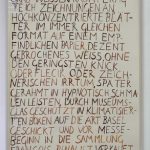 EINE ZEICHNUNG
HOCHKONZENTRIERTE BLÄT-
TER IM IMMER GLEICHEN
FORMAT AUF EINEM EMP
FINDLICHEN PAPIER DEZENT
GEBROCHENES WEISS, OHNE
DEN GERINGSTEN KNICK
ODER FLECK ODER ZEICH-
NERISCHEN IRRTUM, SPÄTER
GERAHMT IN HYPNOTISCH SCHMA
LEN LEISTEN, DURCH MUSEUMS-
GLAS GESCHÜTZT IN KLIMATISIER-
TEN BOXEN AUF DIE ART BASEL
GESCHICKT UND VOR MESSE-
BEGINN IN DIE SAMMLUNG
FRANÇOIS PINAULT